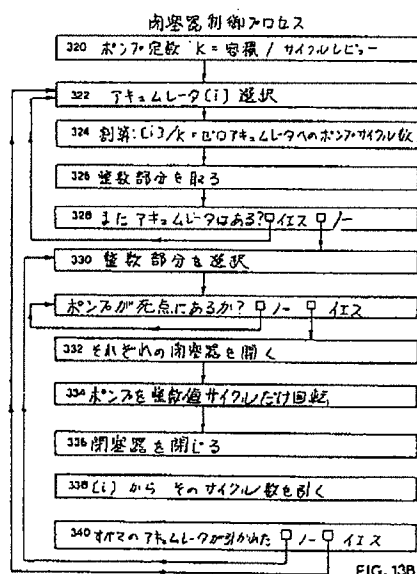 閉塞器制御プロセス
320 ポンプ定数 K = 容積 / サイクルレビュー
322 アキュムレータ(i)選択
324 割算:(i)/K=ゼロアキュムレータへのポンプサイクル数
326 整数部分を取る
328 まだアキュムレータはある? イエス ノー
330 整数部分を選択
ポンプが死点にあるか? ノー イエス
332 それぞれの閉塞器を開く
334 ポンプを整数値サイクルだけ回転
336 閉塞器を閉じる
338 (i)からそのサイクル数を引く
340 すべてのアキュムレータが引かれた ノー イエス
FIG. 13B